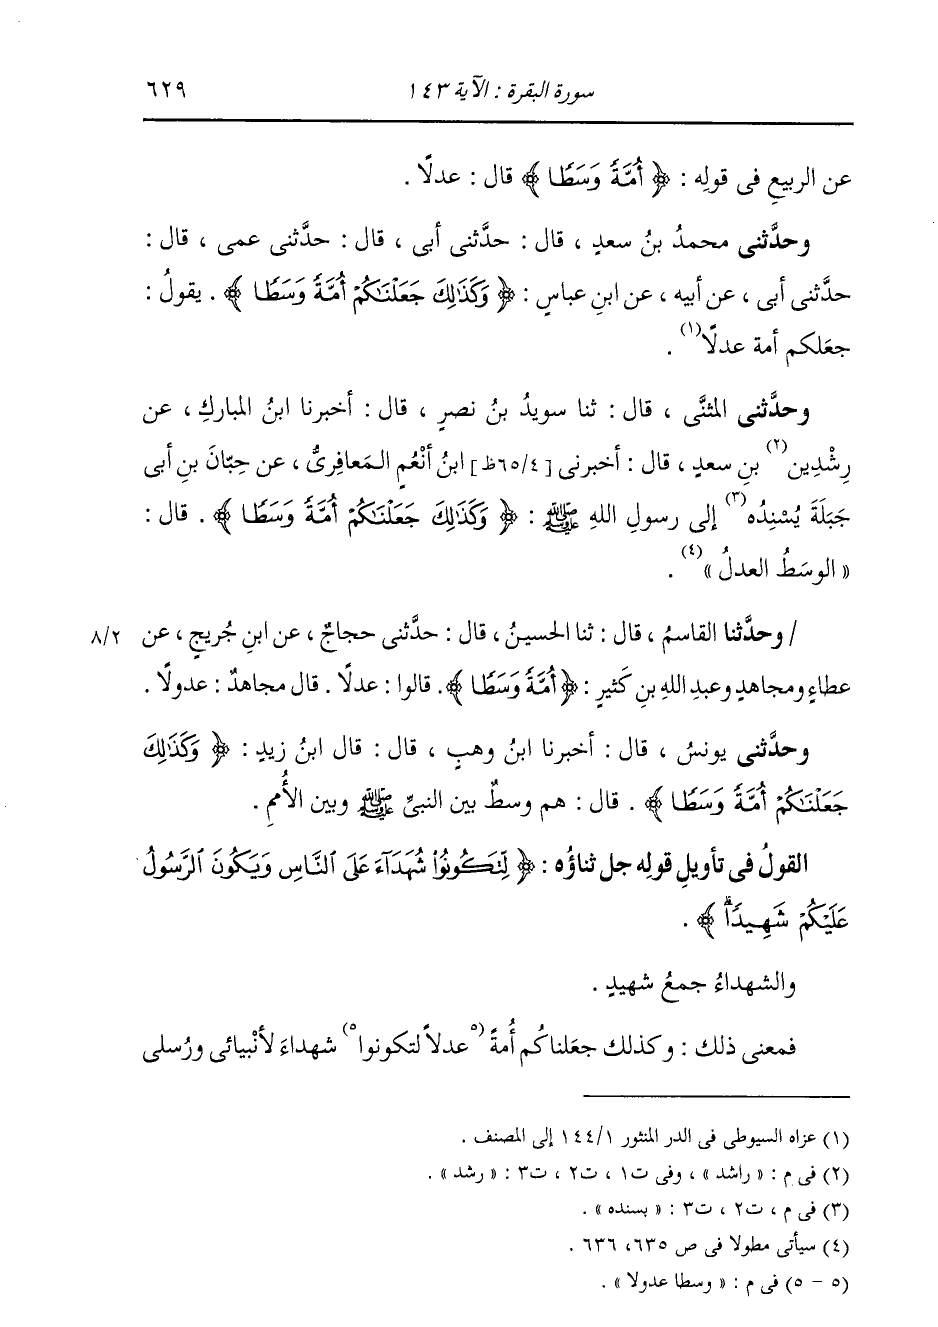 سورة البقرة : الآية ١٤٣ ٦٢٩
عن الربيعِ فى قولِه : ﴿ أُمَّةً وَسَطًا ﴾ قال : عدلًا .
وحدَّثنى محمدُ بنُ سعدٍ ، قال : حدَّثنى أبى ، قال : حدَّثنى عمى ، قال :
حدَّثنى أبى ، عن أبيه ، عن ابنِ عباسٍ : ﴿ وَكَذَٰلِكَ جَعَلْنَٰكُمْ أُمَّةً وَسَطًا ﴾ . يقولُ :
جعَلكم أمة عدلًا(١) .
وحدَّثنى المثنَّى ، قال : ثنا سويدُ بنُ نصرٍ ، قال : أخبرنا ابنُ المباركِ ، عن
رِشْدِين(٢) بنِ سعدٍ ، قال : أخبرنى [٦٥/٤ظ] ابنُ أنْعُمٍ المَعافِرىُّ ، عن حِبّانَ بنِ أبى
جَبَلَةَ يُسْنِدُه(٣) إلى رسولِ اللهِ ﷺ : ﴿ وَكَذَٰلِكَ جَعَلْنَٰكُمْ أُمَّةً وَسَطًا ﴾ . قال :
« الوسَطُ العدلُ »(٤) .
/ وحدَّثنا القاسمُ ، قال : ثنا الحسينُ ، قال : حدَّثنى حجاجٌ ، عن ابنِ جُريجٍ ، عن ٨/٢
عطاءٍ ومجاهدٍ وعبدِ اللهِ بنِ كَثيرٍ : ﴿ أُمَّةً وَسَطًا ﴾. قالوا : عدلًا . قال مجاهدٌ : عدولًا .
وحدَّثنى يونسُ ، قال : أخبرنا ابنُ وهبٍ ، قال : قال ابنُ زيدٍ : ﴿ وَكَذَٰلِكَ
جَعَلْنَٰكُمْ أُمَّةً وَسَطًا ﴾ . قال : هم وسطٌ بين النبىِّ ﷺ وبين الأُممِ .
القولُ فى تأويلِ قولِه جل ثناؤُه : ﴿ لِّتَكُونُوا۟ شُهَدَآءَ عَلَى ٱلنَّاسِ وَيَكُونَ ٱلرَّسُولُ
عَلَيْكُمْ شَهِيدًاۗ ﴾ .
والشهداءُ جمعُ شهيدٍ .
فمعنى ذلك : وكذلك جعَلناكُم أُمةً (٥عدلاً لتكونوا٥) شهداءَ لأنْبيائى ورُسلى
(١) عزاه السيوطى فى الدر المنثور ١٤٤/١ إلى المصنف .
(٢) فى م : « راشد » ، وفى ت١ ، ت٢ ، ت٣ : « رشد » .
(٣) فى م ، ت٢ ، ت٣ : « بسنده » .
(٤) سيأتى مطولا فى ص ٦٣٥، ٦٣٦ .
(٥ - ٥) فى م : « وسطا عدولا » .